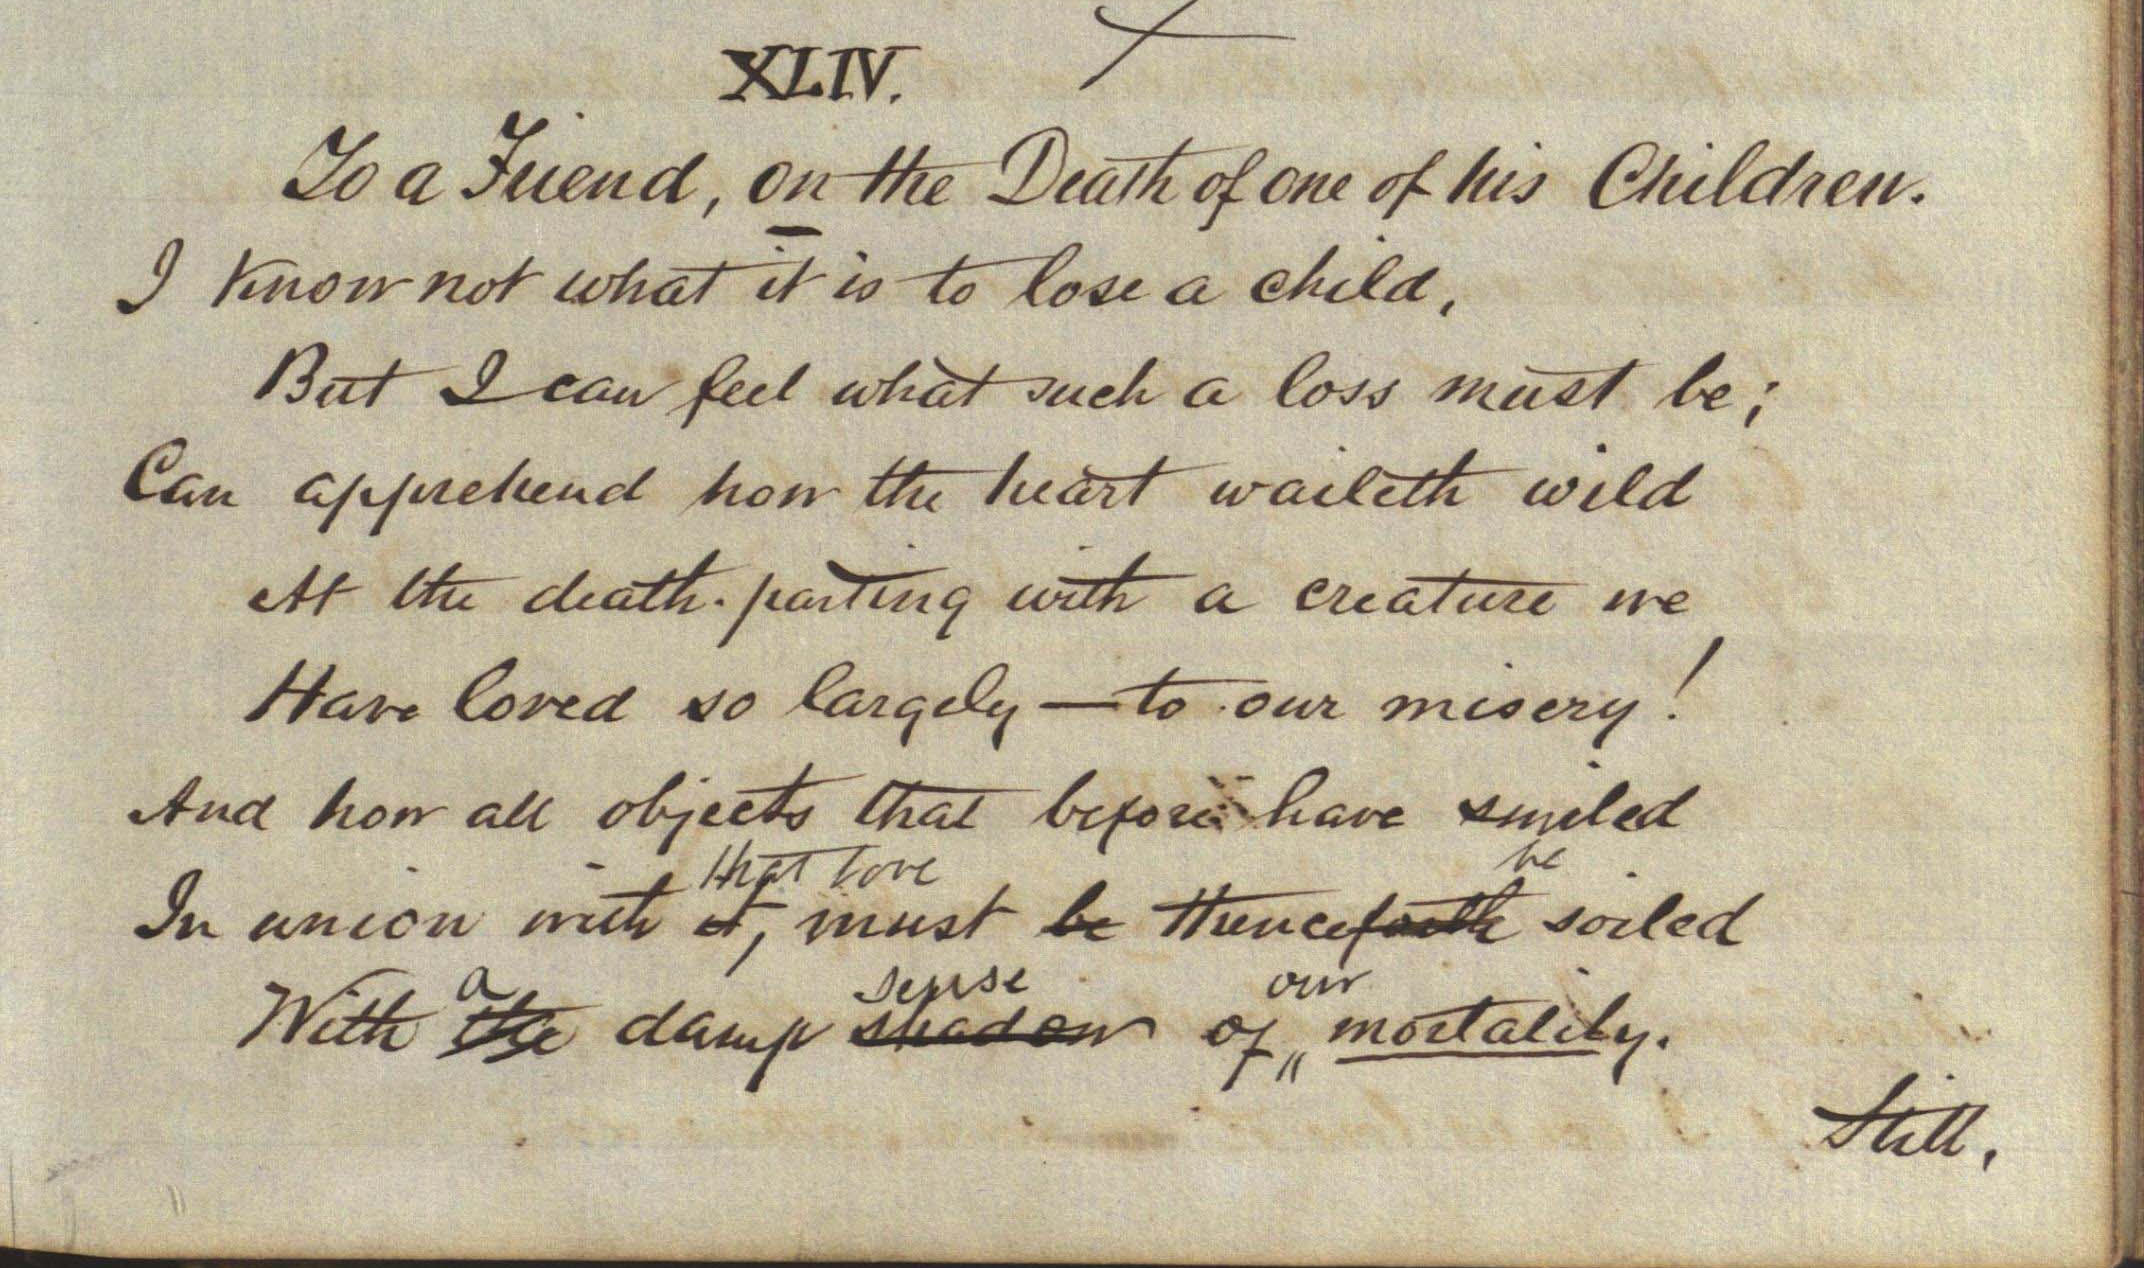 XLIV.
To a Friend, on the Death of one of his Children.
I know not what it is to lose a child,
But I can feel what such a loss must be;
Can apprehend how the heart waileth wild
At the death-parting with a creature we
Have loved so largely — to our misery!
And how all objects that before have smiled
that love be
In union with it, must be thenceforth soiled
a sense our
With the damp shadow of mortality.
Still,